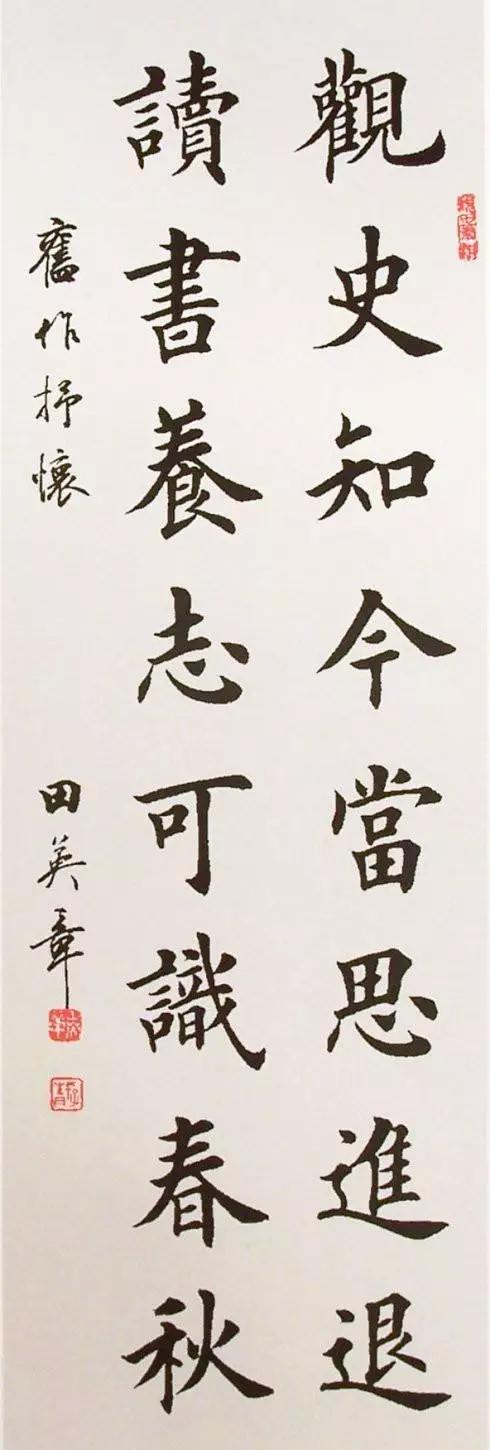 觀史知今當思進退
讀書養志可識春秋
舊作抒懷
田英章